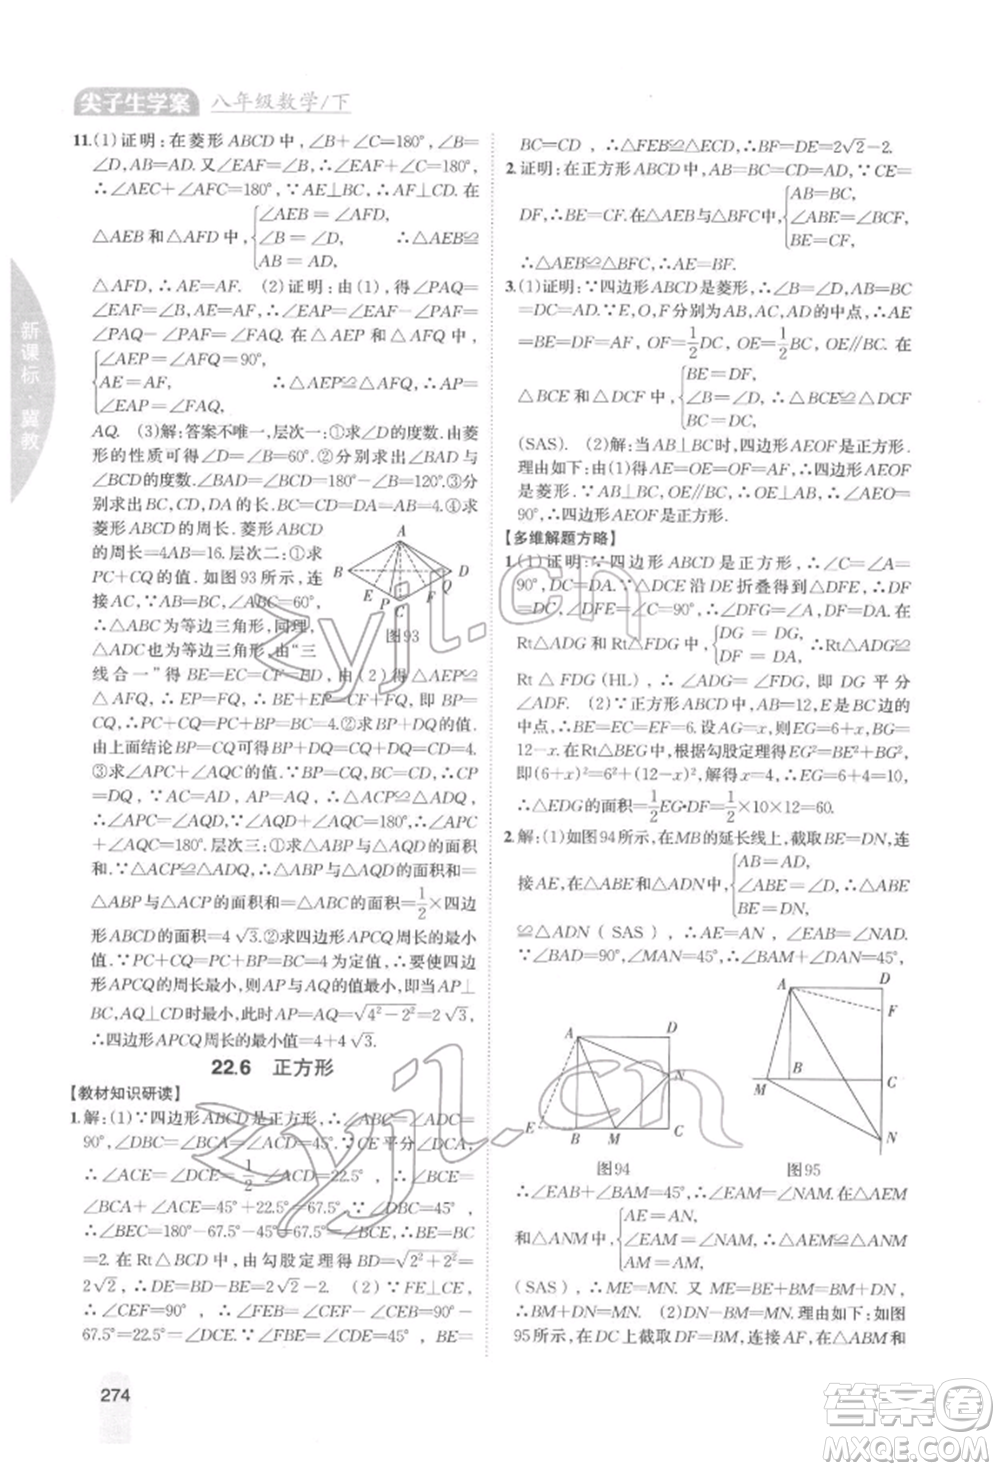 尖子生学案 八年级数学/下
新课标·冀教
11.(1)证明:在菱形ABCD中,∠B+∠C=180°,∠B=
∠D,AB=AD.又∠EAF=∠B,∴∠EAF+∠C=180°.
∴∠AEC+∠AFC=180°,∵AE⊥BC,∴AF⊥CD.在
△AEB和△AFD中,{∠AEB=∠AFD, ∠B=∠D, AB=AD, ∴△AEB≌
△AFD,∴AE=AF. (2)证明:由(1),得∠PAQ=
∠EAF=∠B,∴∠EAP=∠EAF-∠PAF=
∠PAQ-∠PAF=∠FAQ.在△AEP和△AFQ中,
{∠AEP=∠AFQ=90°, AE=AF, ∠EAP=∠FAQ, ∴△AEP≌△AFQ,∴AP=
AQ. (3)解:答案不唯一,层次一:①求∠D的度数.由菱
形的性质可得∠D=∠B=60°.②分别求∠BAD,
∠BCD的度数.∠BAD=∠BCD=180°-∠B=120°.③分
别求出BC,CD,DA的长.BC=CD=DA=4.④求
菱形ABCD的周长.菱形ABCD
的周长=4AB=16.层次二:①求
PC+CQ的值.如图93,连接
AC,∵∠B=60°,∴△ABC
为等边三角形,同理,
△ADC为等边三角形,由“三
线合一”得BE=EC=CF=FD.由(2)得△AEP≌
△AFQ,∴EP=FQ,∴PC+CQ=4.②求BP+QD的值.
由上面结论BP=CQ可得BP+DQ=CQ+DQ=CD=4.
③∠APC+∠AQC的值.∵BP=CQ,AB=AC,
∠B=∠ACQ=60°,∴△ABP≌△ACQ,∴∠APC+
∠AQC=180°.层次三:①求△ABP与△AQD的面积
和.∵△ABP≌△ACQ,∴△ABP与△AQD的面积和=
△ABP与△ADQ的面积和=△ABC的面积=1/2×四边
形ABCD的面积=4√3.②求四边形APCQ周长的最小
值.四边形APCQ的周长=4+2AP,∴要使四边形
APCQ的周长最小,则AP与AQ的值最小,即当AP⊥
BC,AQ⊥CD时AP最小,∵AP=AQ=√4²-2²=2√3,
∴四边形APCQ周长的最小值=4+4√3.
A
B D
E F
P C Q
图93
22.6 正方形
【教材知识研读】
1.解:(1)∵四边形ABCD是正方形,∴∠ABC=∠ADC=
90°,∠DBC=∠BCA=∠ACD=45°.∵CE平分∠DCA,
∴∠ACE=∠DCE=1/2∠ACD=22.5°,∴∠BCE=
∠BCA+∠ACE=45°+22.5°=67.5°.∵∠DBC=45°,
∴∠BEC=180°-67.5°-45°=67.5°=∠BCE,∴BE=BC
=2.在Rt△BCD中,由勾股定理得BD=√2²+2²=
2√2,∴DE=BD-BE=2√2-2. (2)∵FE⊥CE,
∴∠CEF=90°,∴∠FEB=∠CEF-∠CEB=90°-
67.5°=22.5°=∠DCE,∵∠FBE=∠EDC=45°,BE=
BC=CD,∴△FEB≌△ECD,∴BF=DE=2√2-2.
2.证明:在正方形ABCD中,AB=BC=CD=AD,∵CE=
DF,∴BE=CF.在△ABE与△BCF中,{AB=BC, ∠ABE=∠BCF, BE=CF,
∴△ABE≌△BCF.
3.(1)证明:∵四边形ABCD是菱形,∴AB=AD=BC
=DC,∠B=∠D.∵E,O,F分别为AB,AC,AD的中点,∴AE=
BE=DF=AF,OF=1/2DC,OE=1/2BC,OE∥BC.在
△BCE和△DCF中,{BE=DF, ∠B=∠D, BC=DC, ∴△BCE≌△DCF
(SAS). (2)解:当AB⊥BC时,四边形AEOF是正方形.
理由如下:由(1),得AE=OE=OF=AF,∴四边形AEOF
是菱形.∵AB⊥BC,OE∥BC,∴OE⊥AB,∴∠AEO=
90°,∴四边形AEOF是正方形.
【多维解题方略】
1.(1)证明:∵四边形ABCD是正方形,∴∠A=∠C=
90°,DC=DA.∵△DCE沿DE折叠得到△DFE,∴DF=
DC,∠DFE=∠C=90°,∴∠DFG=∠A=90°,在
Rt△ADG和Rt△FDG中,{DG=DG, DF=DA, ∴Rt△ADG≌
Rt△FDG(HL),∴∠ADG=∠FDG,即DG平分
∠ADF. (2)∵正方形ABCD中,AB=12,E是BC边的
中点,∴BE=EC=EF=6.设AG=x,则GF=x,BG=
12-x.在Rt△BEG中,根据勾股定理得EG²=BE²+BG²,
即(6+x)²=6²+(12-x)²,解得x=4,∴EG=6+4=10,
∴△EDG的面积=1/2EG·DF=1/2×10×12=60.
2.解:(1)如图94所示,在MB的延长线上,截取BE=DN,连
接AE,在△ABE和△ADN中,∵{AB=AD, ∠ABE=∠D, BE=DN, ∴△ABE
≌△ADN(SAS),∴AE=AN,∠EAB=∠NAD.
∵∠BAD=90°,∠MAN=45°,∴∠BAM+∠DAN=45°,
A D
N
E B M C
图94
A D
F
M B C
N
图95
∴∠EAB+∠BAM=45°,∴∠EAM=∠NAM.在
△AEM和△ANM中,{AE=AN, ∠EAM=∠NAM, AM=AM, ∴△AEM≌△ANM
(SAS),∴ME=MN.又ME=BE+BM=BM+DN,
∴BM+DN=MN. (2)DN-BM=MN.理由如下:如图
95所示,在DC上截取DF=BM,连接AF,在△ABM和
274
zyjl.cn
zyjl.cn
答案圈
MXQE.COM